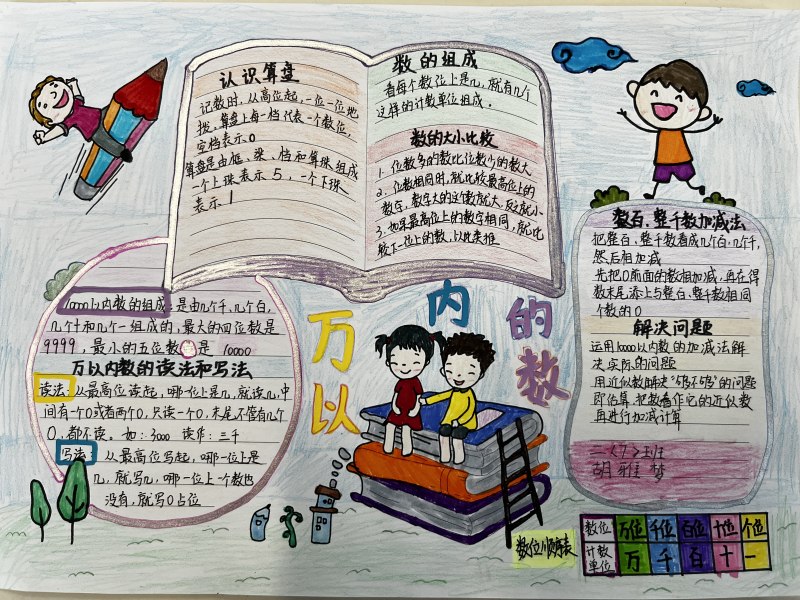 认识算盘
记数时，从高位起，一位一位地
拨，算盘上每一档代表一个数位，
空档表示0
算盘是由框、梁、档和算珠组成
一个上珠表示5，一个下珠
表示1
数的组成
看每个数位上是几，就有几个
这样的计数单位组成。
数的大小比较
1、位数多的数比位数少的数大
2、位数相同时，就比较最高位上的
数字，数字大的这个数就大，反之就小
3、如果最高位上的数字相同，就比
较下一位上的数，以此类推
10000以内数的组成是由几千、几个百，
几个十和几个一组成的，最大的四位数是
9999，最小的五位数是10000
万以内数的读法和写法
读法：从最高位读起，哪一位上是几，就读几，中
间有一个0或者两个0，只读一个0，末尾不管有几个
0，都不读。如：3000 读作：三千
写法： 从最高位写起，哪一位上是
几，就写几，哪一位上一个数也
没有，就写0占位
万以内的数
整百、整千数加减法
把整百、整千数看成几个百、几个千，
然后相加减
先把0前面的数相加减，再在得
数末尾添上与整百、整千数相同
个数的0
解决问题
运用10000以内数的加减法解
决实际的问题
用近似数解决“够不够”的问题
即估算，把数看作它的近似数
再进行加减计算
二〈7〉班
胡雅梦
数位顺序表
数位 万位 千位 百位 十位 个位
计数单位 万 千 百 十 一